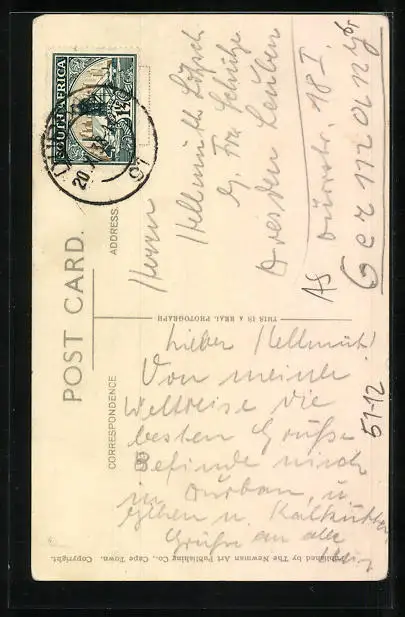 POST CARD.
CORRESPONDENCE
ADDRESS
THIS IS A REAL PHOTOGRAPH
Published by The Newman Art Publishing Co., Cape Town. Copyright.
SOUTH AFRICA
1½
20
Herrn
Hellmuth
b. Frau Schulze
Dresden Leuben
18 I
Germany
51-12
Lieber Hellmut!
Von meiner
Weltreise die
besten Grüße
Befinde mich
in Durban, u.
n. Kalkutta
Grüße an alle